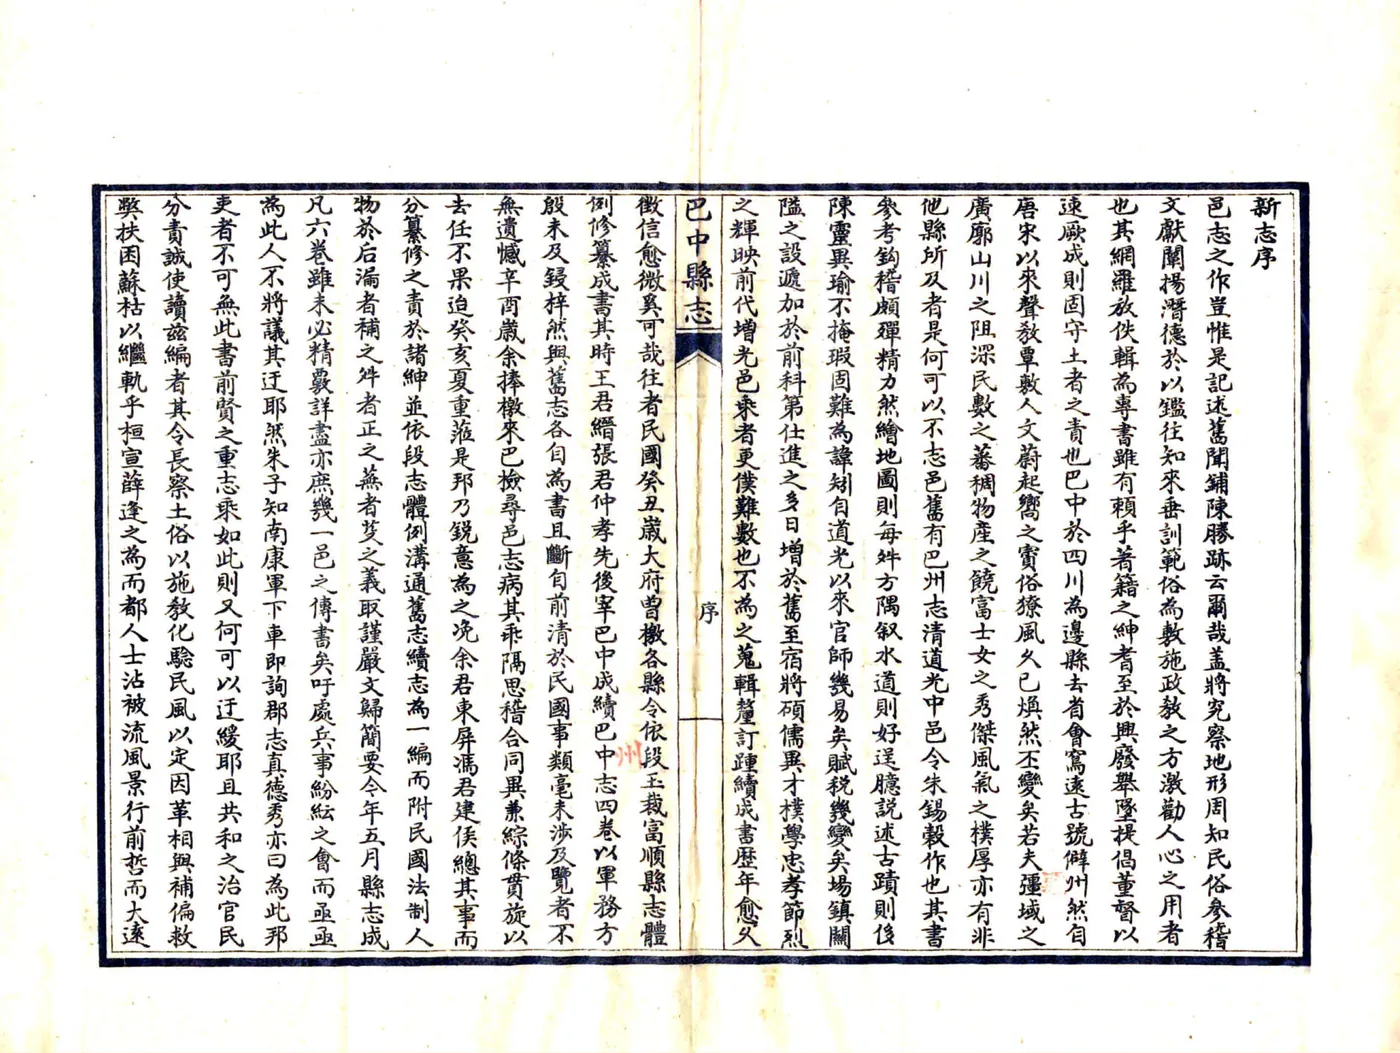 新志序
邑志之作豈惟是記述舊聞鋪陳勝跡云爾哉蓋將究察地形周知民俗參稽
文獻闡揚潛德於以鑑往知來垂訓範俗為敷施政教之方激勸人心之用者
也其網羅放佚輯為專書雖有賴乎著籍之紳耆至於興廢舉墜提倡董督以
速厥成則固守土者之責也巴中於四川為邊縣去省會窵遠古號僻州然自
唐宋以來聲教覃敷人文蔚起嚮之賨俗獠風久已煥然丕變矣若夫疆域之
廣廓山川之阻深民數之蕃稠物產之饒富士女之秀傑風氣之樸厚亦有非
他縣所及者是何可以不志邑舊有巴州志清道光中邑令朱錫穀作也其書
參考鈎稽頗殫精力然繪地圖則每舛方隅叙水道則好逞臆說述古蹟則侈
陳靈異瑜不掩瑕固難為諱矧自道光以來官師幾易矣賦稅幾變矣場鎮關
隘之設遞加於前科第仕進之多日增於舊至宿將碩儒異才樸學忠孝節烈
之輝映前代增光邑乘者更僕難數也不為之蒐輯釐訂踵續成書歷年愈久
巴中縣志
序
徵信愈微奚可哉往者民國癸丑歲大府曾檄各縣令依段玉裁富順縣志體
例修纂成書其時王君縉張君仲孝先後宰巴中成續巴中志四卷以軍務方
州
殷未及鋟梓然與舊志各自為書且斷自前清於民國事類毫未涉及覽者不
無遺憾辛酉歲余捧檄來巴檢尋邑志病其乖隔思稽合同異兼綜條貫旋以
去任不果迨癸亥夏重蒞是邦乃銳意為之浼余君東屏馮君建侯總其事而
分纂修之責於諸紳並依段志體例溝通舊志續志為一編而附民國法制人
物於后漏者補之舛者正之蕪者芟之義取謹嚴文歸簡要今年五月縣志成
凡六卷雖未必精覈詳盡亦庶幾一邑之傳書矣吁處兵事紛紜之會而亟亟
為此人不將議其迂耶然朱子知南康軍下車即詢郡志真德秀亦曰為此邦
吏者不可無此書前賢之重志乘如此則又何可以迂緩耶且共和之治官民
分責誠使讀茲編者其令長察土俗以施教化驗民風以定因革相與補偏救
弊扶困蘇枯以繼軌乎桓宣薛逢之為而都人士沾被流風景行前哲而大遠